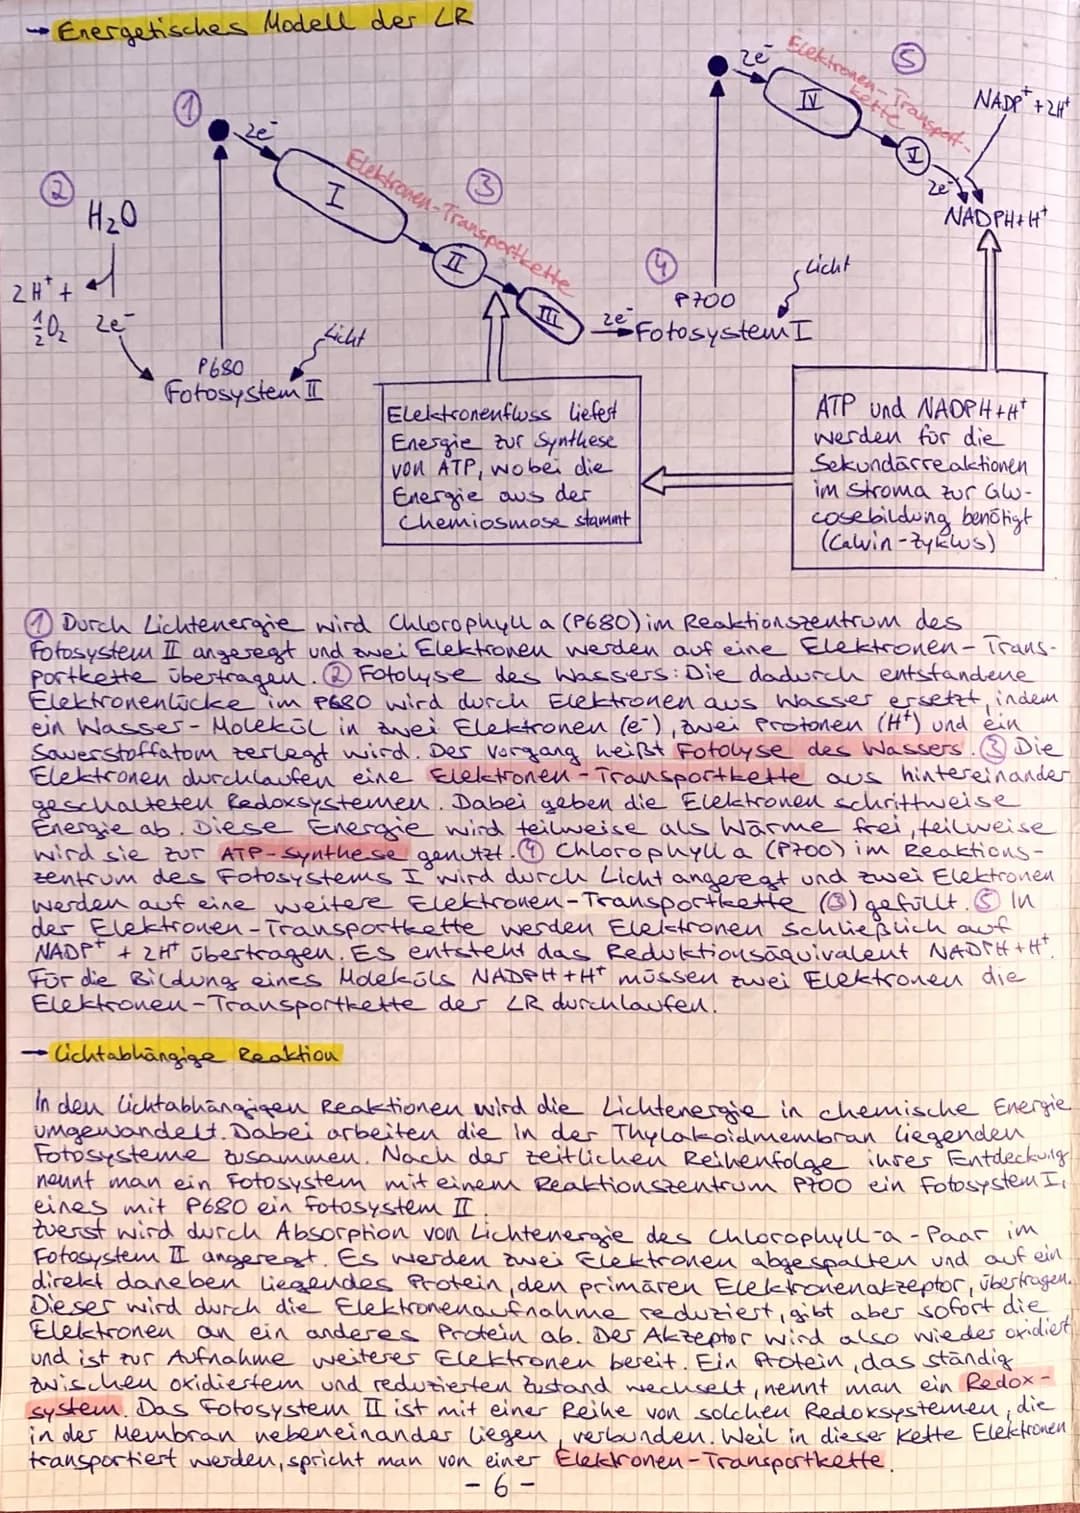 → Energetisches Modell der LR
①
2e⁻
Elektronen-Transportkette
③
I
II
III
②
H₂O
2H⁺ +
½O₂
2e⁻
P680
Fotosystem II
Licht
2e⁻
④
P700
Fotosystem I
Licht
2e⁻
Elektronen-Transport-
kette
⑤
IV
V
2e⁻
NADP⁺ + 2H⁺
NADPH+H⁺
Elektronenfluss liefert
Energie zur Synthese
von ATP, wobei die
Energie aus der
Chemiosmose stammt
ATP und NADPH+H⁺
werden für die
Sekundärreaktionen
im Stroma zur Glu-
cosebildung benötigt
(Calvin-Zyklus)
① Durch Lichtenergie wird Chlorophyll a (P680) im Reaktionszentrum des
Fotosystem II angeregt und zwei Elektronen werden auf eine Elektronen-Trans-
portkette übertragen. ② Fotolyse des Wassers: Die dadurch entstandene
Elektronenlücke im P680 wird durch Elektronen aus Wasser ersetzt, indem
ein Wasser-Molekül in zwei Elektronen (e⁻), zwei Protonen (H⁺) und ein
Sauerstoffatom zerlegt wird. Der Vorgang heißt Fotolyse des Wassers. ③ Die
Elektronen durchlaufen eine Elektronen-Transportkette aus hintereinander
geschalteten Redoxsystemen. Dabei geben die Elektronen schrittweise
Energie ab. Diese Energie wird teilweise als Wärme frei, teilweise
wird sie zur ATP-Synthese genutzt. ④ Chlorophyll a (P700) im Reaktions-
zentrum des Fotosystems I wird durch Licht angeregt und zwei Elektronen
werden auf eine weitere Elektronen-Transportkette (③) gefüllt. ⑤ In
der Elektronen-Transportkette werden Elektronen schließlich auf
NADP⁺ + 2H⁺ übertragen. Es entsteht das Reduktionsäquivalent NADPH+H⁺.
Für die Bildung eines Moleküls NADPH+H⁺ müssen zwei Elektronen die
Elektronen-Transportkette der LR durchlaufen.
→ Lichtabhängige Reaktion
In den lichtabhängigen Reaktionen wird die Lichtenergie in chemische Energie
umgewandelt. Dabei arbeiten die in der Thylakoidmembran liegenden
Fotosysteme zusammen. Nach der zeitlichen Reihenfolge ihrer Entdeckung
nennt man ein Fotosystem mit einem Reaktionszentrum P700 ein Fotosystem I,
eines mit P680 ein Fotosystem II.
Zuerst wird durch Absorption von Lichtenergie des Chlorophyll-a-Paar im
Fotosystem II angeregt. Es werden zwei Elektronen abgespalten und auf ein
direkt daneben liegendes Protein, den primären Elektronenakzeptor, übertragen.
Dieser wird durch die Elektronenaufnahme reduziert, gibt aber sofort die
Elektronen an ein anderes Protein ab. Der Akzeptor wird also wieder oxidiert
und ist zur Aufnahme weiterer Elektronen bereit. Ein Protein, das ständig
zwischen oxidiertem und reduzierten Zustand wechselt, nennt man ein Redox-
system. Das Fotosystem II ist mit einer Reihe von solchen Redoxsystemen, die
in der Membran nebeneinander liegen, verbunden. Weil in dieser Kette Elektronen
transportiert werden, spricht man von einer Elektronen-Transportkette.
- 6 -